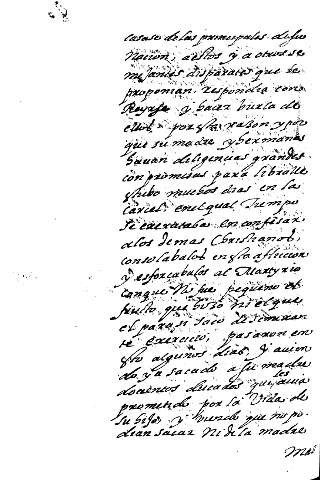 casase de las principales de su
Nacion, a estos y a otros se
mejantes disparates que le
proponian respondia con
Reyrse y hacer burla de
ellos. por esta razon y por
que su madre y hermanos
hacian diligencias grandes
con promesas para libralle
estubo muchos dias en la
carcel, en el qual tiempo
se exercitaba en confesar
a los demas Christianos,
consolabalos en su afliccion
y esforzabalos al Martyrio
con que ni fue pequeño el
fruto, que hizo ni el que
el para si saco de semejan
te exercicio, pasaron en
esto algunos dias, y avien
do ya sacado a su madre
docientos ducados que les avia
prometido por la Vida de
su hijo, y viendo que no po
dian sacar ni de la madre
mas